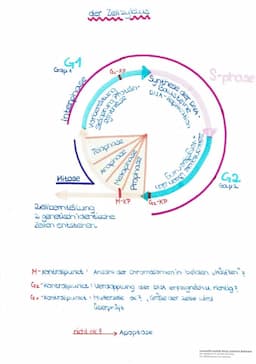 der Zellzyklus
G1
Gap 1
G1-KP
Synthese der DNA-
DNA-Replikation
S-phase
Interphase
G2
Gap 2
Telophase
Anaphase
Metaphase
Prophase
Mitose
M-KP
G2-KP
Zellkernteilung
2 genetisch identische
Zellen entstehen
M-Kontrollpunkt: Anzahl der Chromosomen in beiden "Hälften"?
G2-Kontrollpunkt: Verdopplung der DNA erfolgreich & richtig?
G1-Kontrollpunkt: Mutterzelle ok? / Größe der Zelle wird
überprüft
nicht ok? → Apoptose